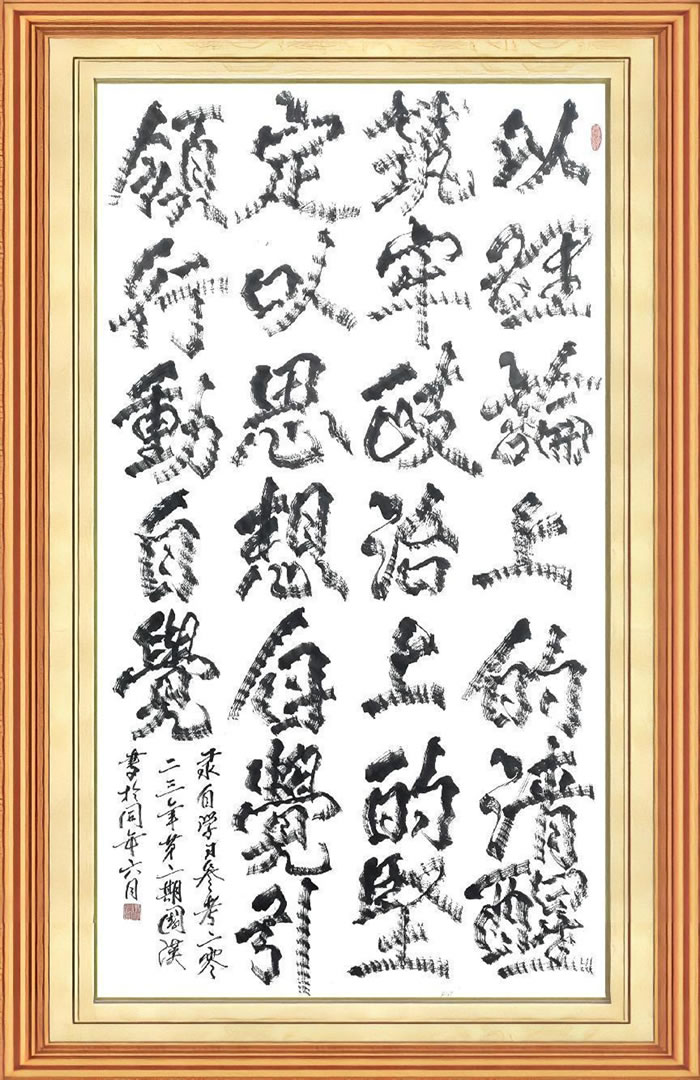 以理論上的清醒
筑牢政治上的堅
定以思想自覺引
領行動自覺
录自学习参考二零
二三年第二期國漢
書於同年六月